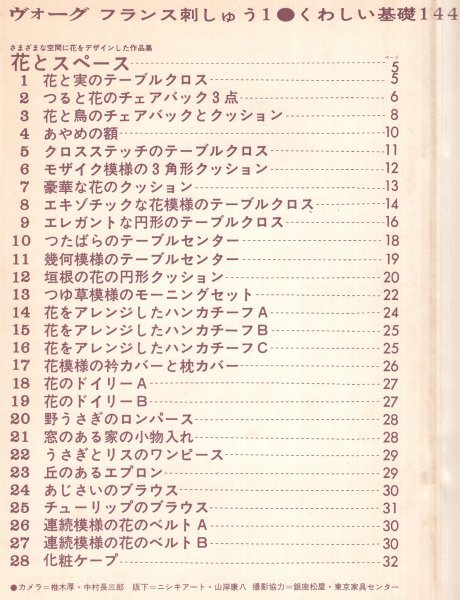 ヴォーグ フランス刺しゅう1●くわしい基礎144
さまざまな空間に花をデザインした作品集 ページ
花とスペース 5
1 花と実のテーブルクロス 5
2 つると花のチェアバック3点 6
3 花と鳥のチェアバックとクッション 8
4 あやめの額 10
5 クロスステッチのテーブルクロス 11
6 モザイク模様の3角形クッション 12
7 豪華な花のクッション 13
8 エキゾチックな花模様のテーブルクロス 14
9 エレガントな円形のテーブルクロス 16
10 つたばらのテーブルセンター 18
11 幾何模様のテーブルセンター 19
12 垣根の花の円形クッション 20
13 つゆ草模様のモーニングセット 22
14 花をアレンジしたハンカチーフA 24
15 花をアレンジしたハンカチーフB 25
16 花をアレンジしたハンカチーフC 25
17 花模様の衿カバーと枕カバー 26
18 花のドイリーA 27
19 花のドイリーB 27
20 野うさぎのロンパース 28
21 窓のある家の小物入れ 28
22 うさぎとリスのワンピース 29
23 丘のあるエプロン 29
24 あじさいのブラウス 30
25 チューリップのブラウス 31
26 連続模様の花のベルトA 30
27 連続模様の花のベルトB 30
28 化粧ケープ 32
●カメラ=椎木厚・中村長三郎 版下=ニシキアート・山岸康八 撮影協力=銀座松屋・東京家具センター